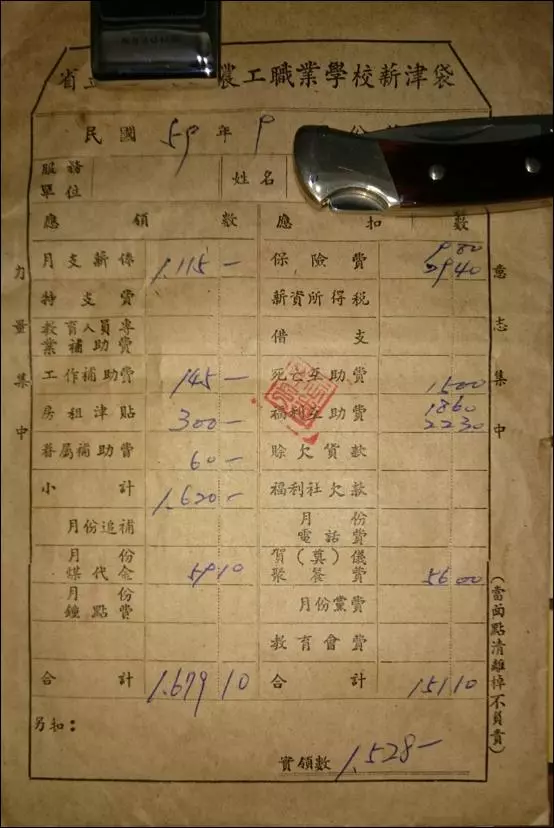 省立 農工職業學校薪津袋
民國 59 年 9 份
服務單位 姓名
應領數 應扣數
月支薪俸 1,115— 保險費 9.80 29 40
特支費 薪資所得稅
教育人員專業補助費 借支
工作補助費 145— 死亡互助費 15 00
房租津貼 300— 福利互助費 18 60 22 30
眷屬補助費 60— 賒欠貨款
小計 1,620— 福利社欠款
月份追補 月份電話費
月份煤代金 59 10 賀(奠)儀聚餐費 56 00
月份鐘點費 月份黨費
教育會費
合計 1,679 10 合計 151 10
另扣:
實領數 1,528—
力量集中
意志集中
(當面點清離棹不負責)